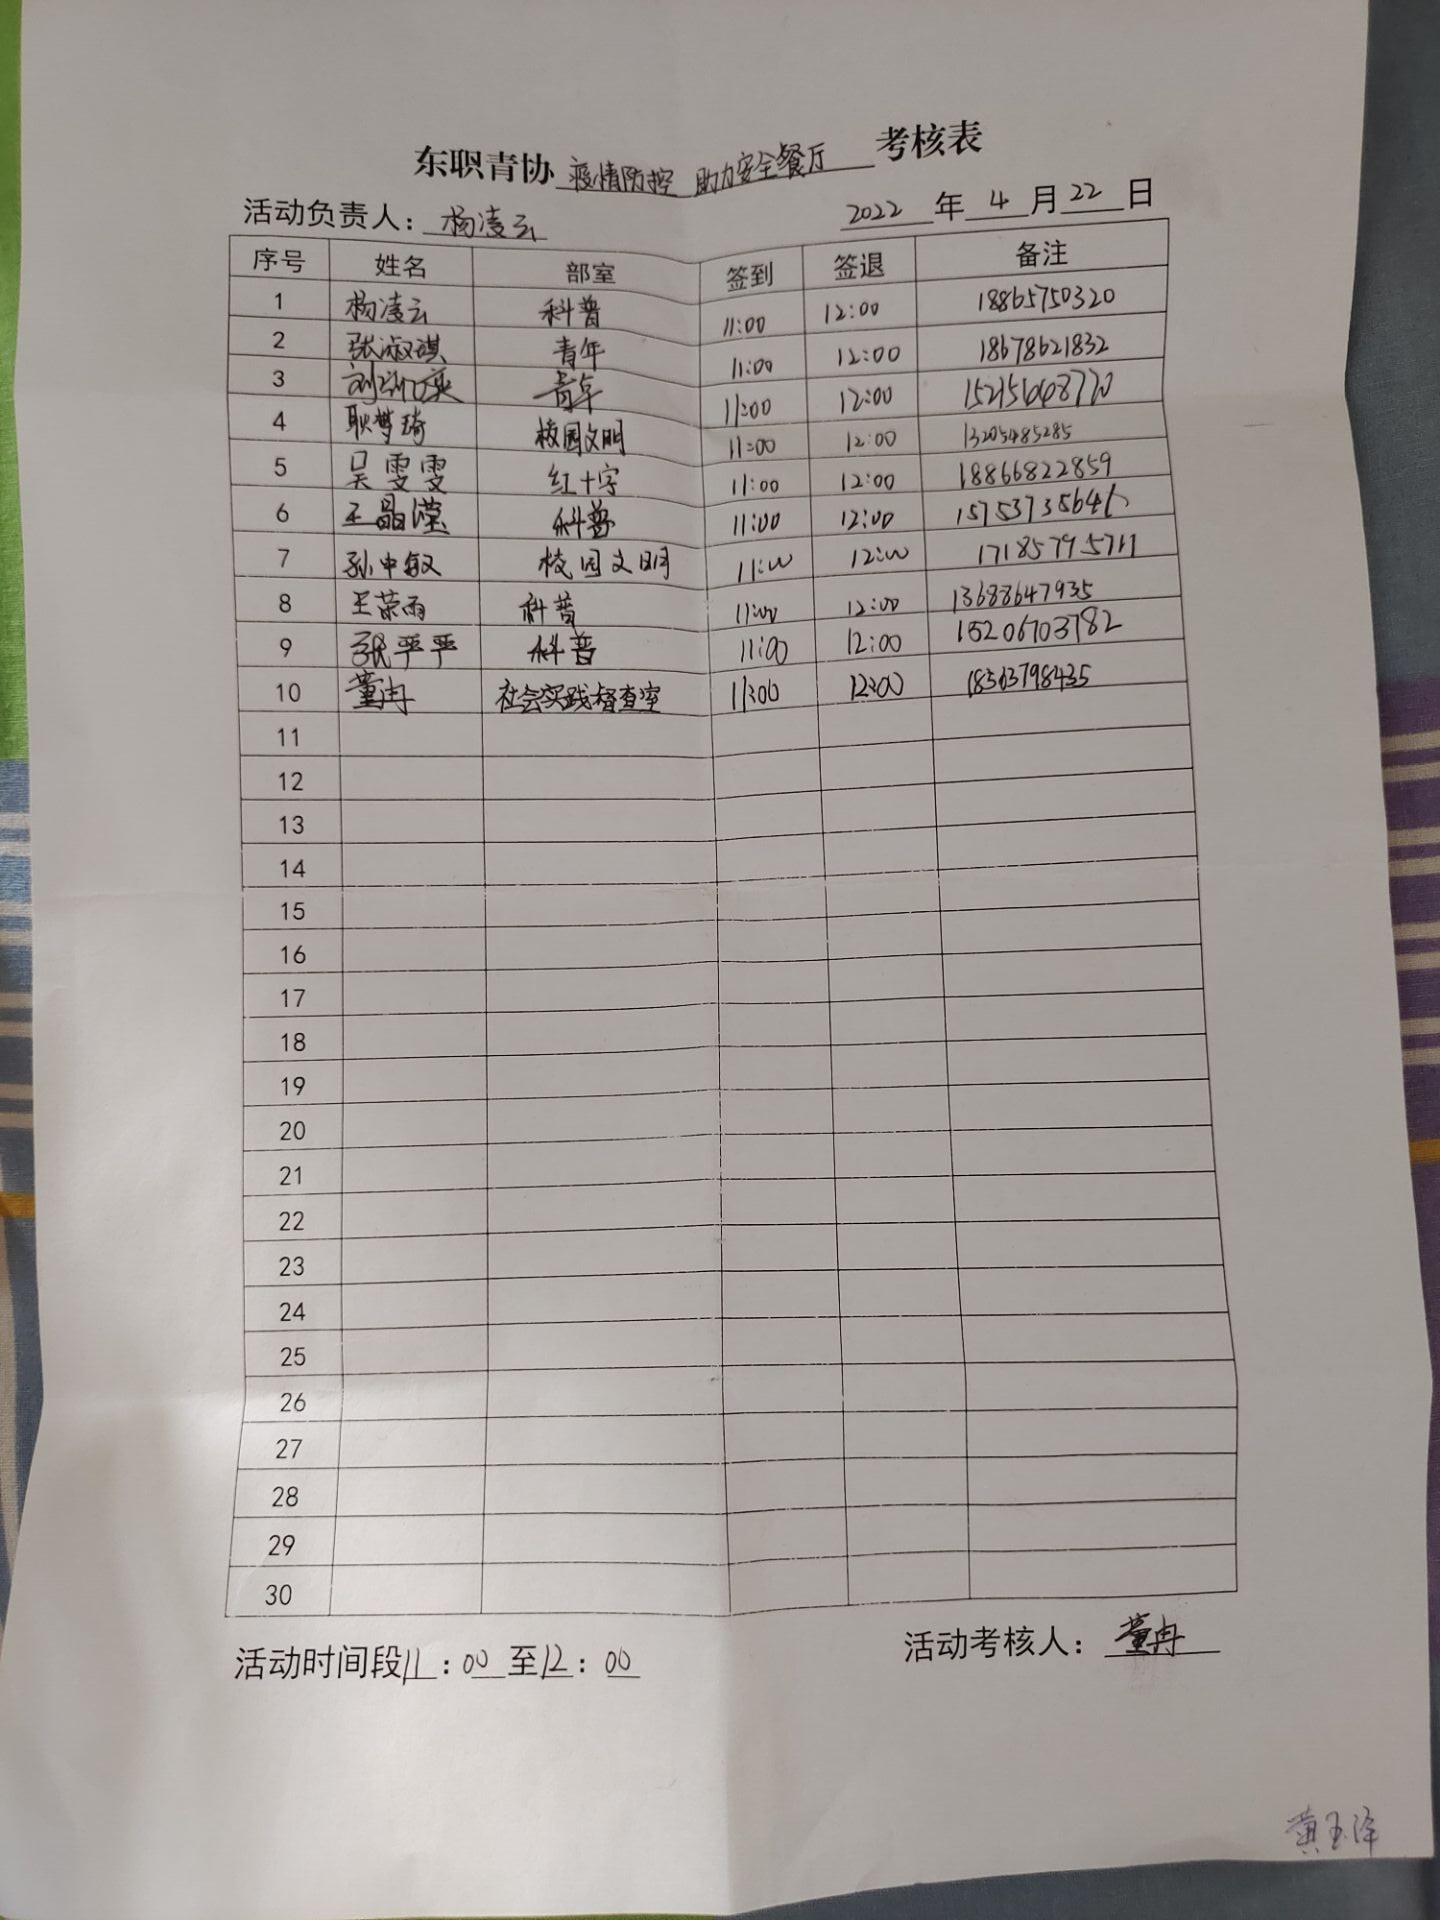 东职青协 疫情防控 助力安全餐厅 考核表
活动负责人：杨凌云 2022 年 4 月 22 日
序号 姓名 部室 签到 签退 备注
1 杨凌云 科普 11:00 12:00 18865750320
2 张淑琪 青年 11:00 12:00 18678621832
3 青年 11:00 12:00
4 耿梦琦 校园文明 11:00 12:00 13205485285
5 吴雯雯 红十字 11:00 12:00 18866822859
6 王晶滢 科普 11:00 12:00
7 孙中敏 校园文明 11:00 12:00 17185795711
8 王荣雨 科普 11:00 12:00 13688647935
9 张严严 科普 11:00 12:00 15206703782
10 董冉 社会实践督查室 11:00 12:00 18363798435
11
12
13
14
15
16
17
18
19
20
21
22
23
24
25
26
27
28
29
30
活动时间段11：00至12：00 活动考核人：董冉
黄玉泽